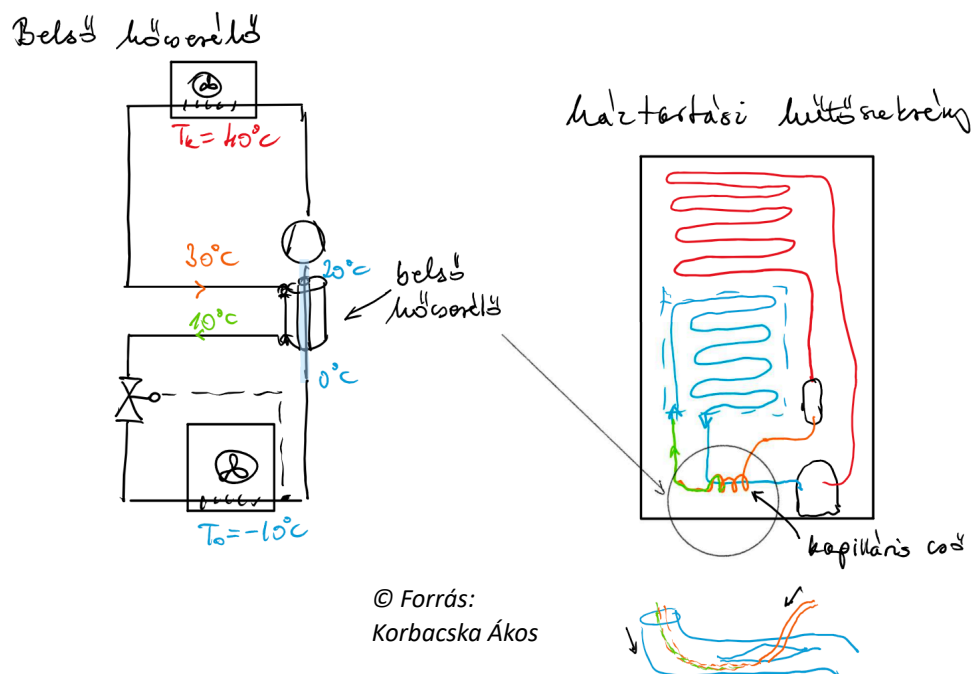 Belső hőcserélő
Tk = 40°C
30°C
20°C
10°C
0°C
T₀ = -10°C
belső
hőcserélő
háztartási hűtőszekrény
kapilláris cső
© Forrás:
Korbacska Ákos